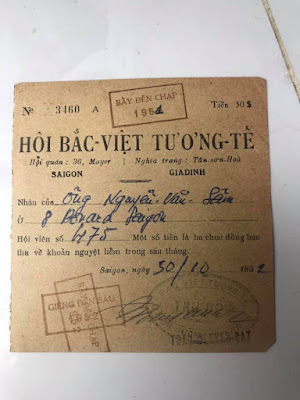 BẢY ĐẾN CHẠP
1952
№ 3460 A Tiền 30$
HỘI BẮC-VIỆT TƯƠNG-TẾ
Hội quán: 36, Mayer | Nghĩa trang: Tân-sơn-Hoà
SAIGON GIADINH
Nhận của Ông Nguyễn-Văn-Sâm
Ở 8 Bonard Saigon
Hội viên số 475 Một số tiền là ba chục đồng học
thu về khoản nguyệt liễm trong sáu tháng.
Saigon, ngày 30/10 1952
GIÊNG ĐẾN SÁU